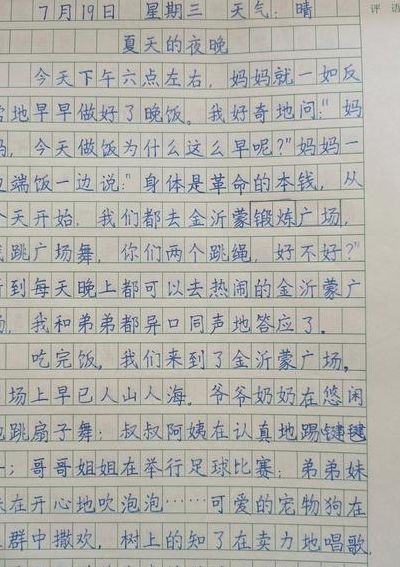 评 语
7月19日 星期三 天气:晴
夏天的夜晚
今天下午六点左右,妈妈就一如反
常地早早做好了晚饭。我好奇地问:"妈
妈,今天做饭为什么这么早呢?"妈妈一
边端饭一边说:"身体是革命的本钱,从
今天开始,我们都去金沂蒙锻炼广场,
我跳广场舞,你们两个跳绳,好不好?"
听到每天晚上都可以去热闹的金沂蒙广
场,我和弟弟都异口同声地答应了。
吃完饭,我们来到了金沂蒙广场。
场上早已人山人海。爷爷奶奶在悠闲
地跳扇子舞;叔叔阿姨在认真地踢键键
子;哥哥姐姐在举行足球比赛;弟弟妹
妹在开心地吹泡泡……可爱的宠物狗在
人群中撒欢,树上的知了在卖力地唱歌